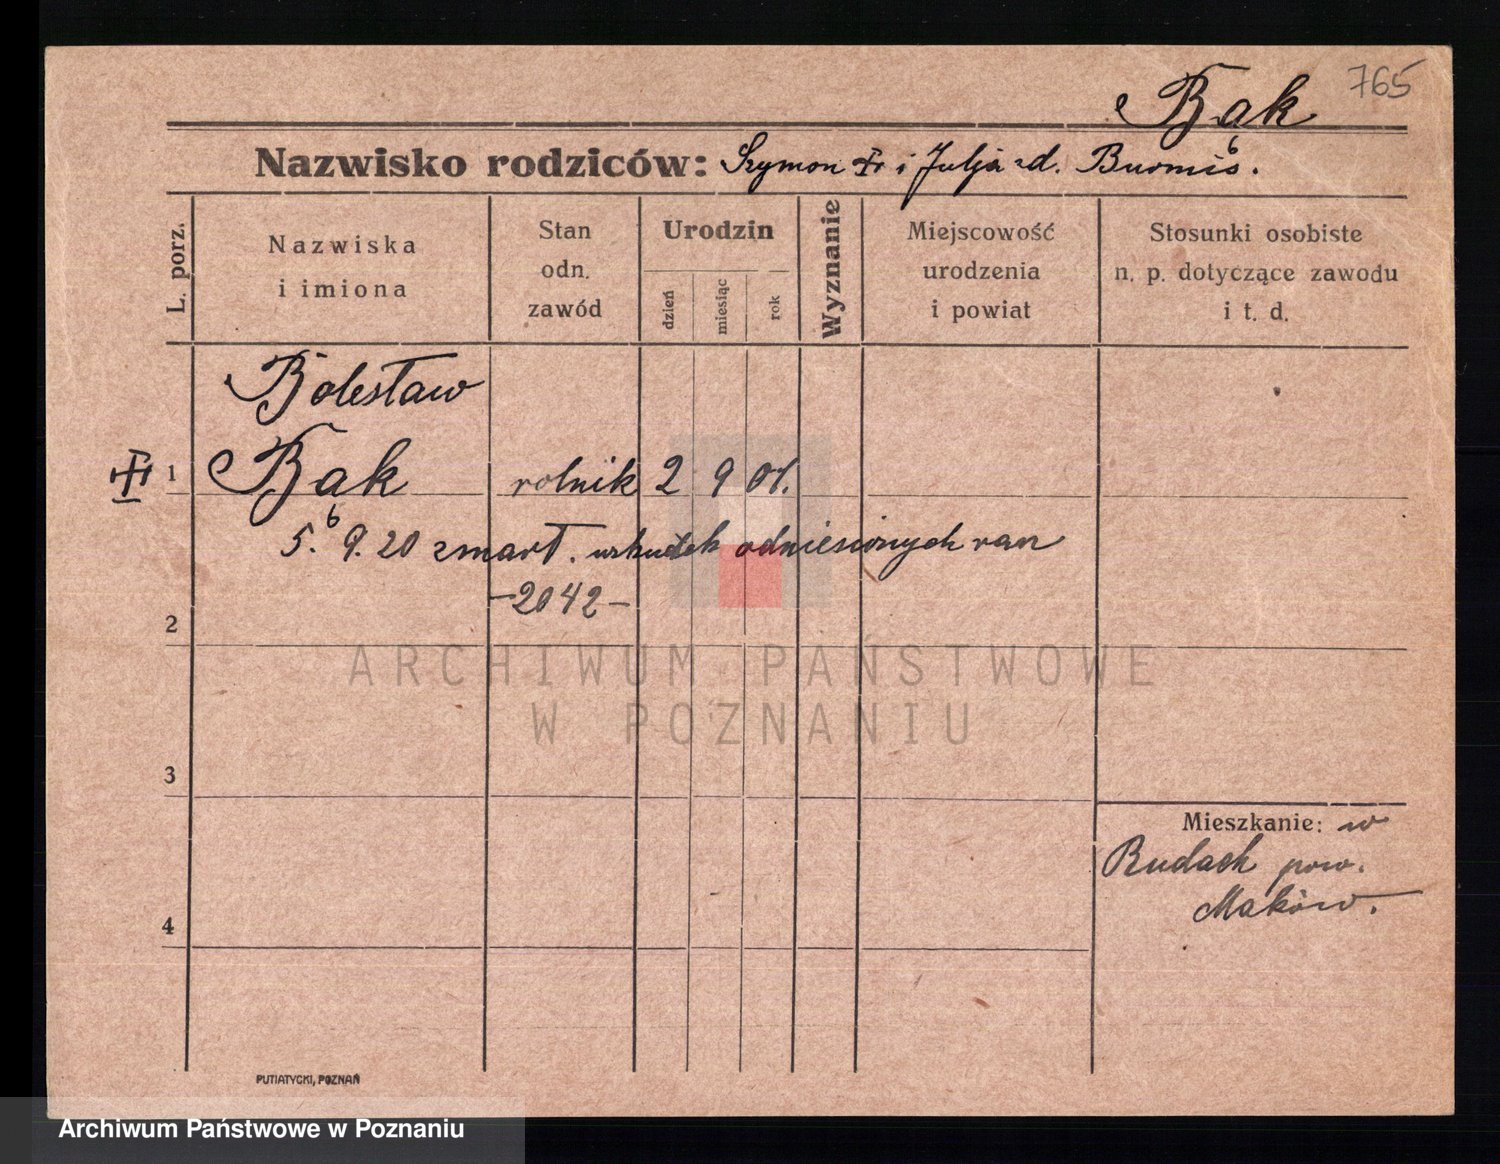 765
Bąk
Nazwisko rodziców: Szymon i Julja zd.
L. porz.
Nazwiska
i imiona
Stan
odn.
zawód
Urodzin
dzień
miesiąc
rok
Wyznanie
Miejscowość
urodzenia
i powiat
Stosunki osobiste
n. p. dotyczące zawodu
i t. d.
Bolesław
1 Bąk rolnik 2 9 01.
5. 9. 20 zmarł. wskutek odniesionych ran
-2042-
2
3
4
Mieszkanie: w
Rudach pow.
Maków.
PUTIATYCKI, POZNAŃ
ARCHIWUM PAŃSTWOWE
W POZNANIU
Archiwum Państwowe w Poznaniu